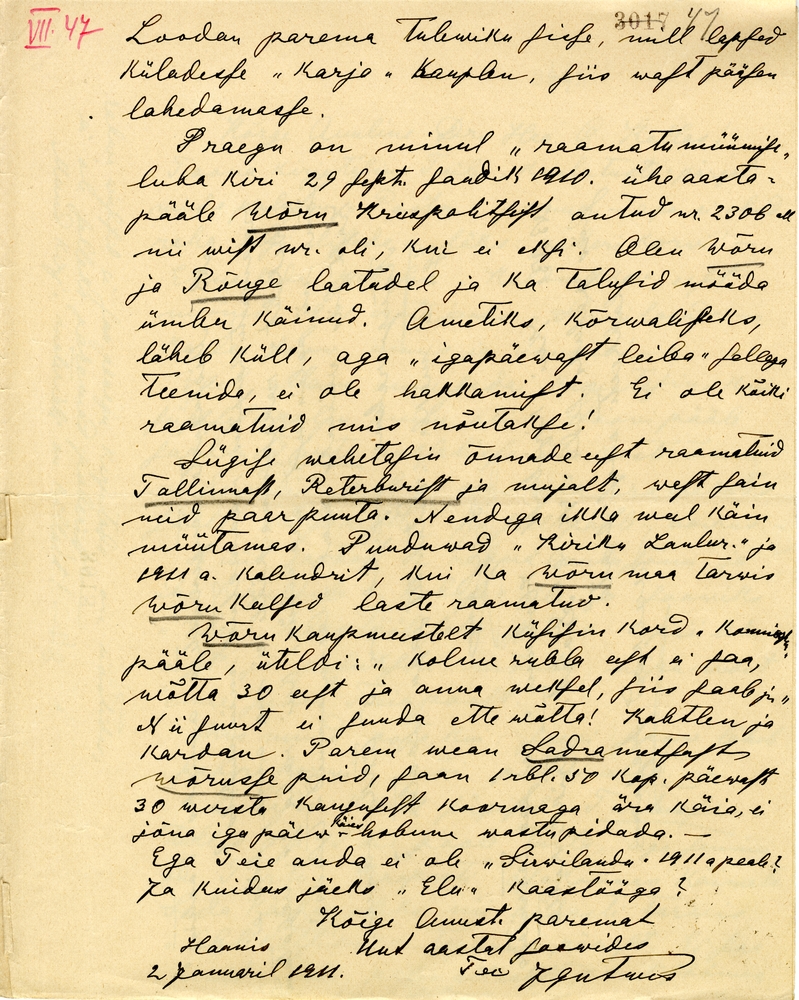 VII. 47
3017 47
Loodan parema tulewiku sisse, mull lapsed
küladesse „Karja" kauplen, siis wast pääsen
lahedamasse.
Praegu on minul „raamatu müümise„
luba kiri 29 sept. saadik 1910. ühe aasta-
pääle Wõru Kreispolitseist antud nr. 2306 all
nii wist nr. oli, kui ei eksi. Olen Wõru
ja Rõuge laatadel ja ka talusid mööda
ümber käinud. Ametiks, kõrwalisteks,
läheb küll, aga „igapäewast leiba" sellega
teenida, ei ole hakkamist. Ei ole kõiki
raamatuid mis nõutakse!
Sügise wahetasin õunade eest raamatuid
Tallinnast, Peterburist ja mujalt, west sain
neid paar puuta. Nendega ikka weel käin
müütamas. Puuduwad „Kiriku Laulur." ja
1911 a. Kalendrit, kui ka Wõru maa tarwis
Wõru keelsed laste raamatud.
Wõru kaupmeestelt küsisin kord „Kommisjoni
pääle, üteldi: „Kolme rubla eest ei saa,
wõtta 30 eest ja anna weksel, siis saab ju„
Nii suurt ei suuda ette wõtta! Kahtlen ja
kardan. Parem wean Sadrametsast
Wõrusse puid, saan 1 rbl. 50 kop. päewast
30 wersta kaugusest koormaga ära käia, ei
jõua iga päew käies hobune wastupidada. —
Ega Teie anda ei ole „Sirwilaudu" 1911 a peale?
Ja kuidas jääks „Elu" kaastööga?
Kõige Armust paremat
Hannis Uut aastat soowides
2 januaril 1911. Teie